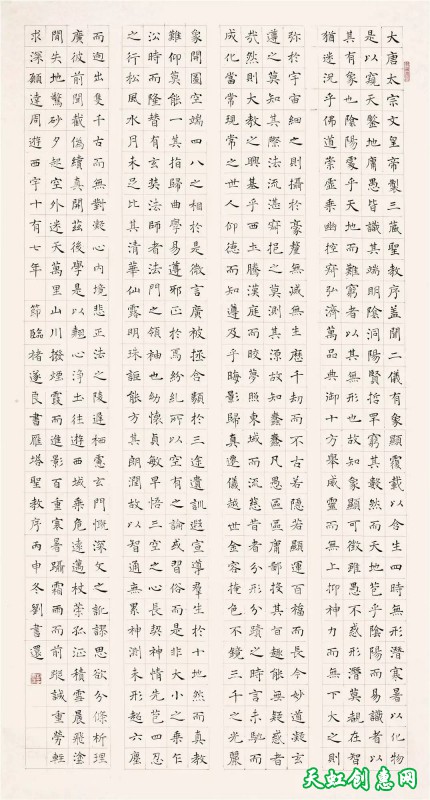 大唐太宗文皇帝製三藏聖教序蓋聞二儀有象顯覆載以含生四時無形潛寒暑以化物
是以窺天鑒地庸愚皆識其端明陰洞陽賢哲罕窮其數然而天地苞乎陰陽而易識者以
其有象也陰陽處乎天地而難窮者以其無形也故知象顯可徵雖愚不惑形潛莫覩在智
猶迷況乎佛道崇虛乘幽控寂弘濟萬品典御十方舉威靈而無上抑神力而無下大之則
弥於宇宙細之則攝於豪釐無滅無生歷千劫而不古若隱若顯運百福而長今妙道凝玄
遵之莫知其際法流湛寂挹之莫測其源故知蠢蠢凡愚區區庸鄙投其旨趣能無疑惑者
哉然則大教之興基乎西土騰漢庭而皎夢照東域而流慈昔者分形分蹟之時言未馳而
成化當常現常之世人仰德而知遵及乎晦影歸真遷儀越世金容掩色不鏡三千之光麗
象開圖空端四八之相於是微言廣被拯含類於三途遺訓遐宣導群生於十地然而真教
難仰莫能一其指歸曲學易遵邪正於焉紛糺所以空有之論或習俗而是非大小之乘乍
沿時而隆替有玄奘法師者法門之領袖也幼懷貞敏早悟三空之心長契神情先苞四忍
之行松風水月未足比其清華仙露明珠詎能方其朗潤故以智通無累神測未形超六塵
而迥出隻千古而無對凝心內境悲正法之陵遲栖慮玄門慨深文之訛謬思欲分條析理
廣彼前聞截偽續真開茲後學是以翹心淨土往遊西域乘危遠邁杖策孤征積雪晨飛塗
間失地驚砂夕起空外迷天萬里山川撥煙霞而進影百重寒暑躡霜雨而前蹤誠重勞輕
求深願達周遊西宇十有七年 節臨褚遂良書雁塔聖教序丙申冬劉書還
天虹创意网